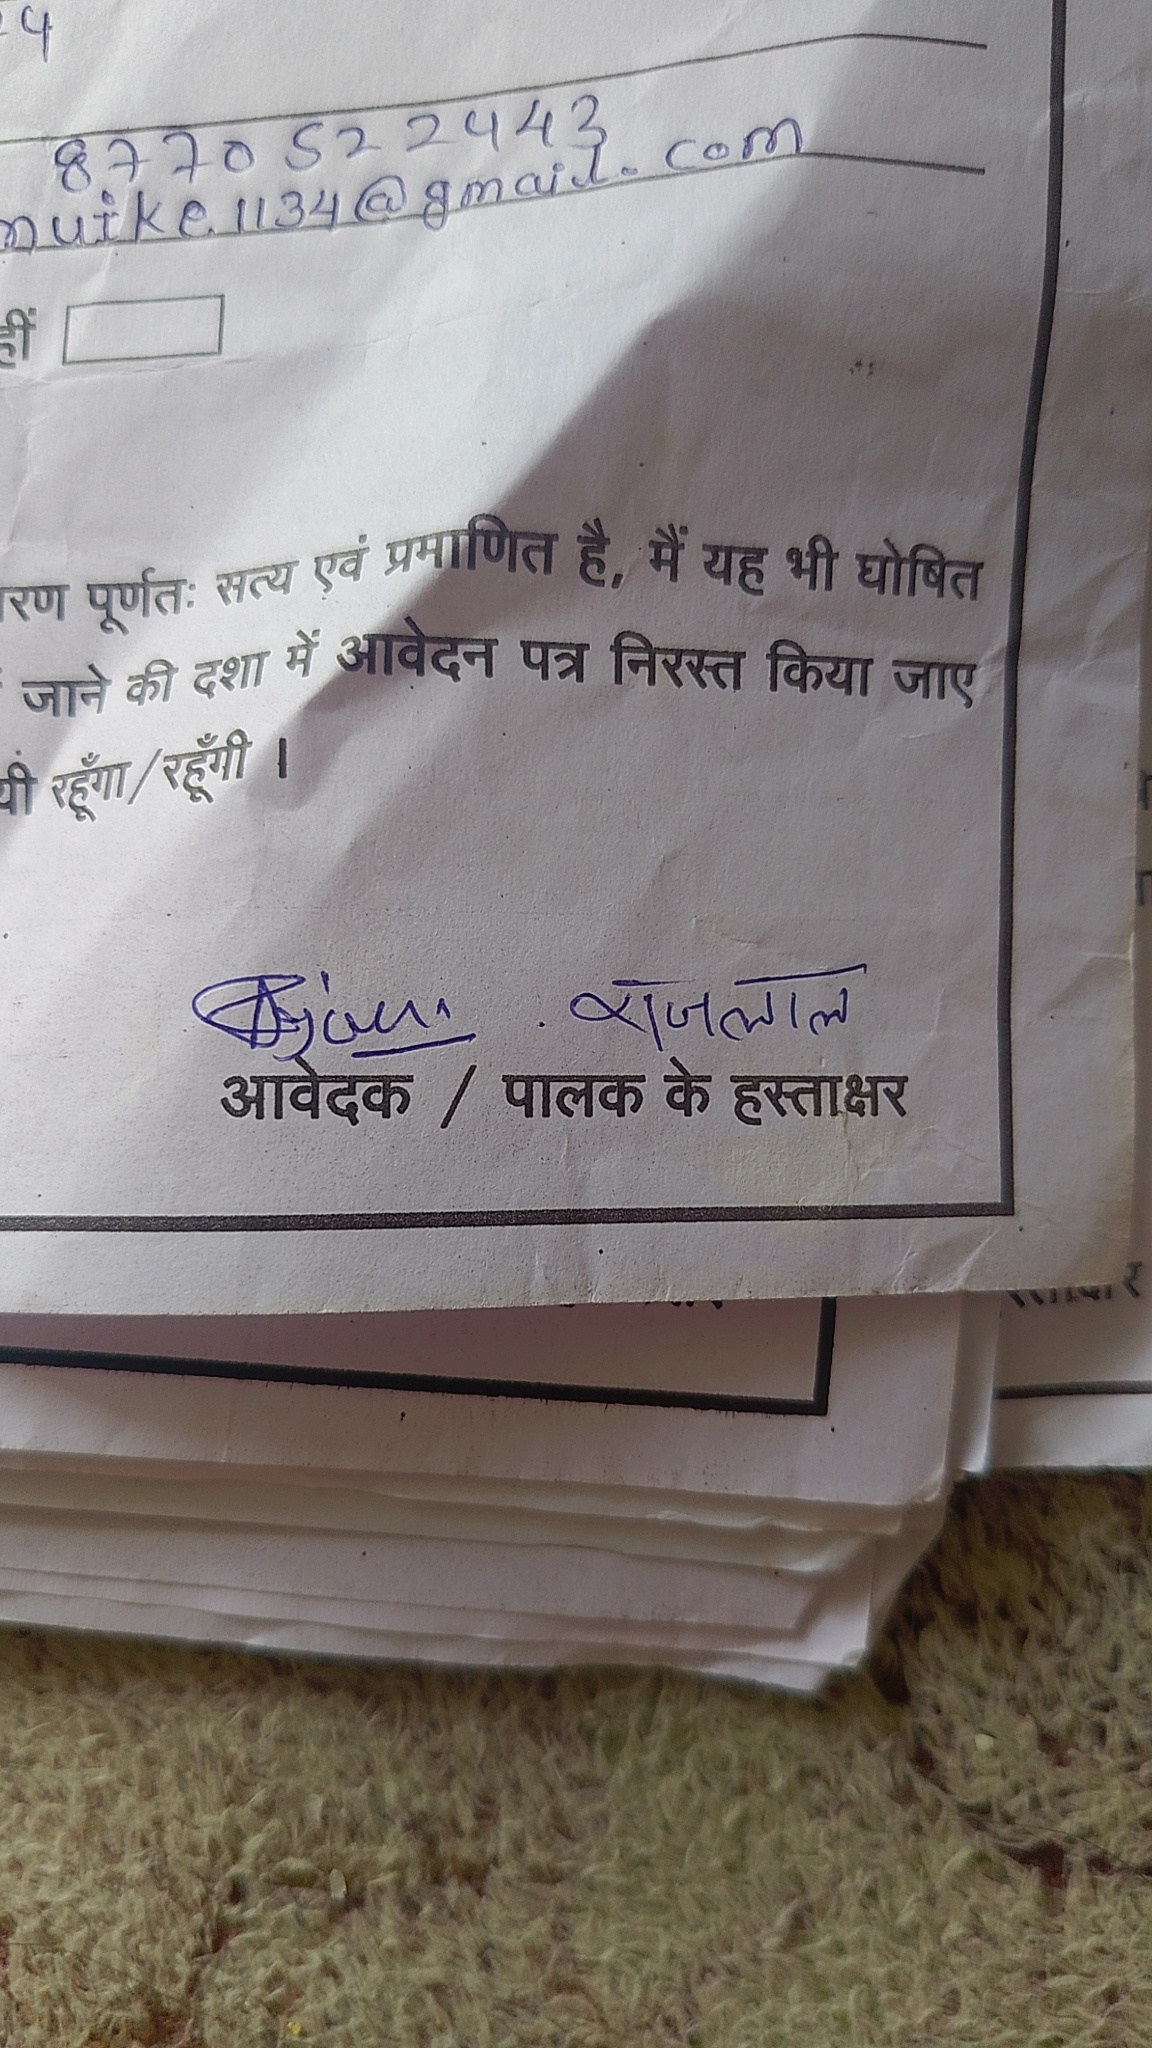 24
8770522443
muike.1134@gmail.com
हीं
पूर्णतः सत्य एवं प्रमाणित है, मैं यह भी घोषित
जाने की दशा में आवेदन पत्र निरस्त किया जाए
यी रहूँगा/रहूँगी ।
राजलाल
आवेदक / पालक के हस्ताक्षर